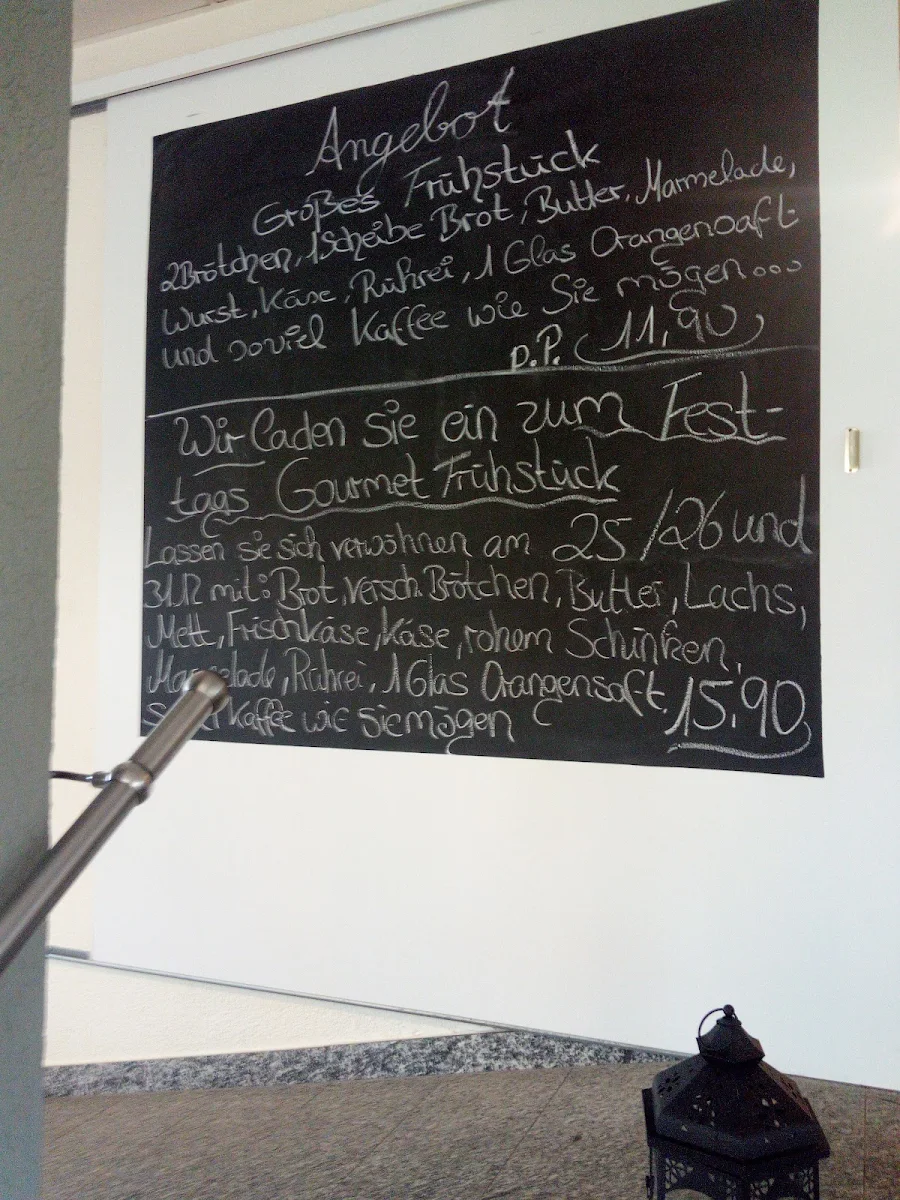 Angebot
Großes Frühstück
2 Brötchen, 1 Scheibe Brot, Butter, Marmelade,
Wurst, Käse, Rührei, 1 Glas Orangensaft
und soviel Kaffee wie Sie mögen...
p.P. 11,90
Wir laden Sie ein zum Fest-
tags Gourmet Frühstück
Lassen sie sich verwöhnen am 25/26 und
31.12 mit: Brot, versch. Brötchen, Butter, Lachs,
Mett, Frischkäse, Käse, rohem Schinken,
Marmelade, Rührei, 1 Glas Orangensaft,
Kaffee wie sie mögen 15,90